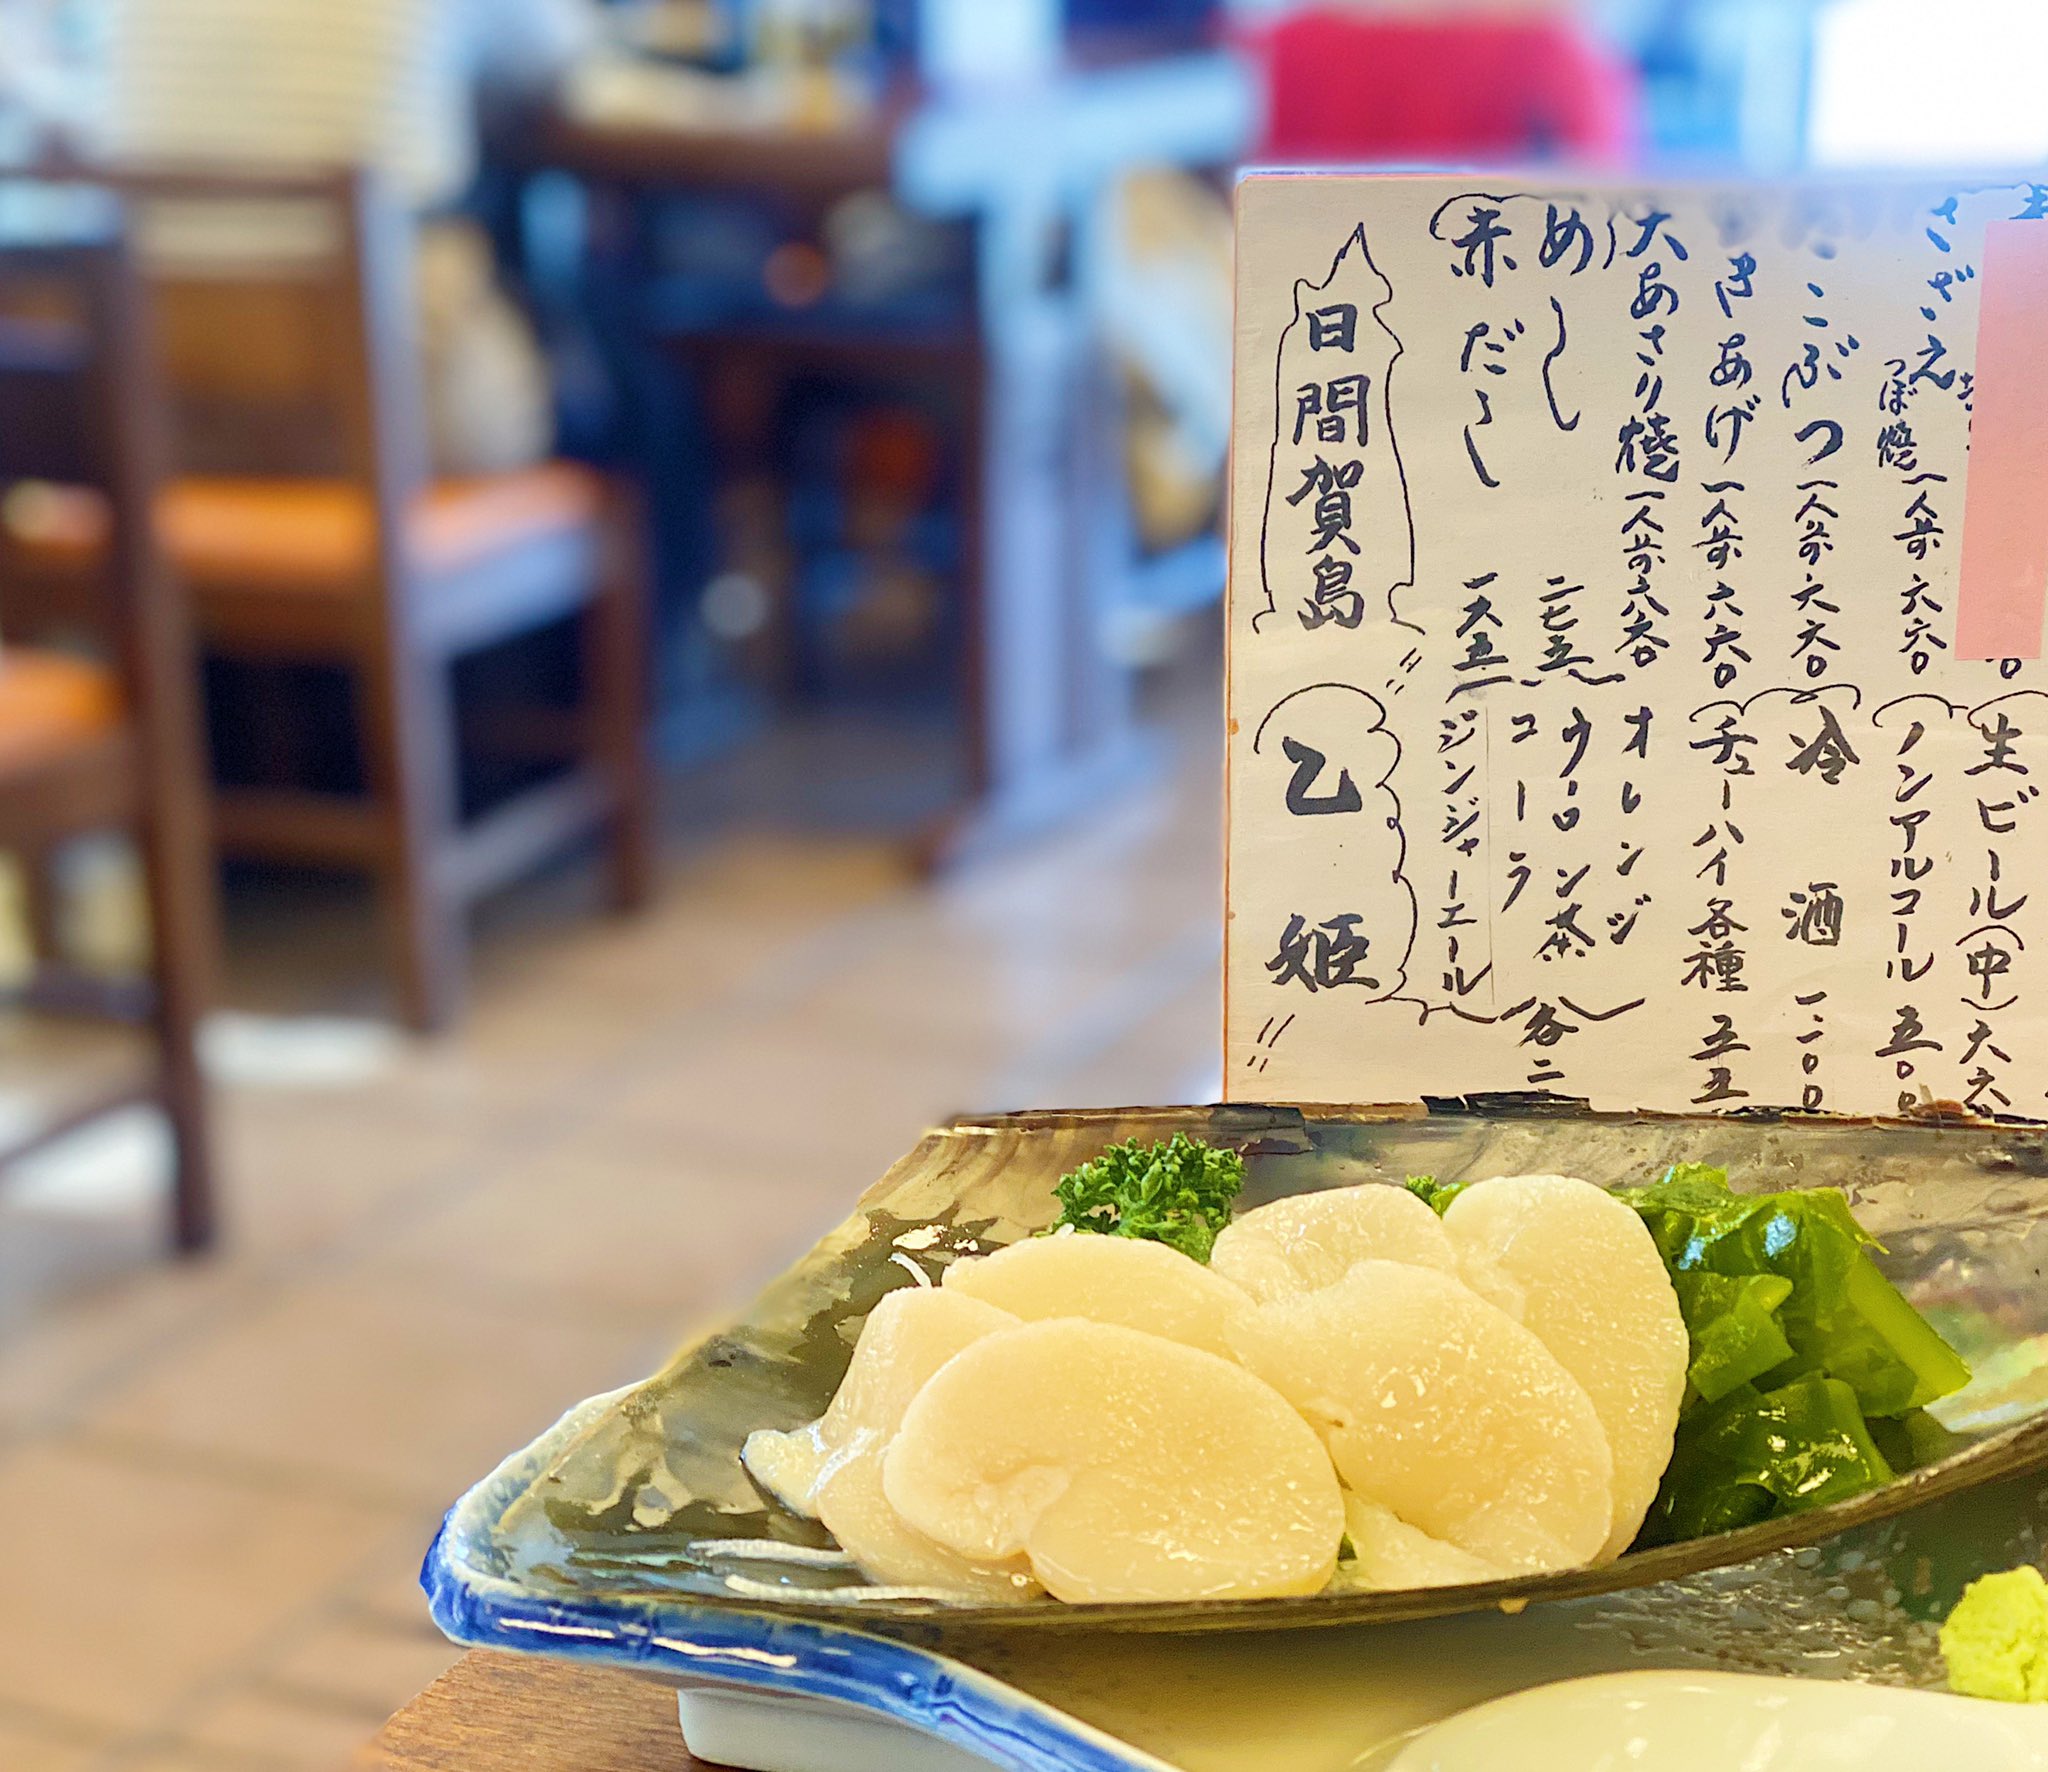 さざえ
つぼ焼 一人前 六六〇
こぶつ 一人前 六六〇
きあげ 一人前 六六〇
大あさり焼 一人前
めし 二七五
赤だし 一六五
生ビール(中) 六六
ノンアルコール 五〇
冷酒 一二〇〇
チューハイ各種 五五
オレンジ
ウーロン茶
コーラ
ジンジャーエール
各二
日間賀島
乙姫